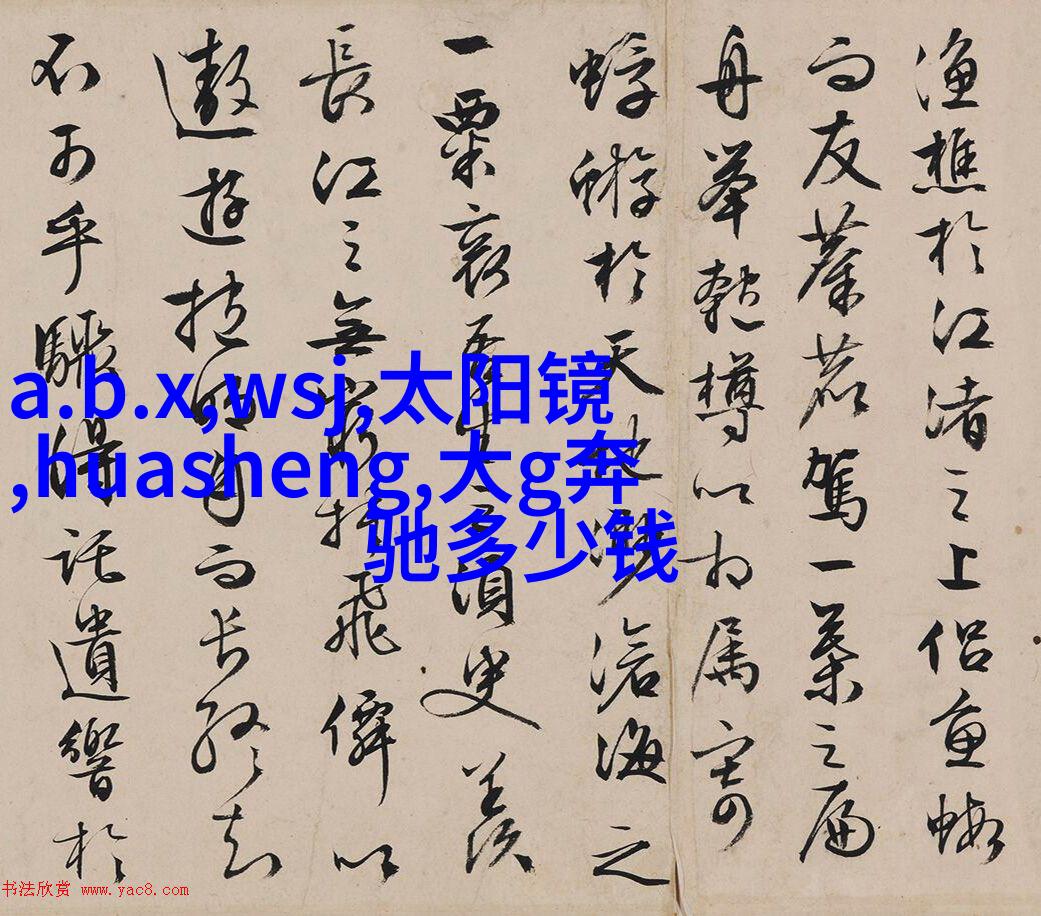 漁樵於江渚之上侣魚蝦
而友麋鹿駕一葉之扁
舟舉匏樽以相属寄
蜉蝣於天地渺滄海之
一粟哀吾生之須臾羡
長江之無窮挾飛僊以
遨遊抱明月而長終知
不可乎驟得託遺響於
a.b.x,wsj,太阳镜
,huasheng,大g奔
驰多少钱
书法欣赏 www.yac8.com